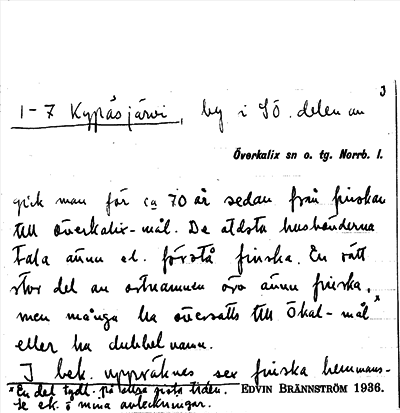 3
1-7 Kypåsjärvi, by i SÖ. delen av
Överkalix sn o. tg. Norrb. l.
gick man för ca 70 år sedan från finskan
till överkalix-mål. De äldsta husbönderna
tala ännu el. förstå finska. En rätt
stor del av ortnamnen äro ännu finska,
men många ha översatts till Ökal-mål*
eller ha dubbel namn.
I bek. uppräknas sex finska hemmans-
*En del tydl. på allra sista tiden. EDVIN BRÄNNSTRÖM 1936.
Se ex. i mina avteckningar.